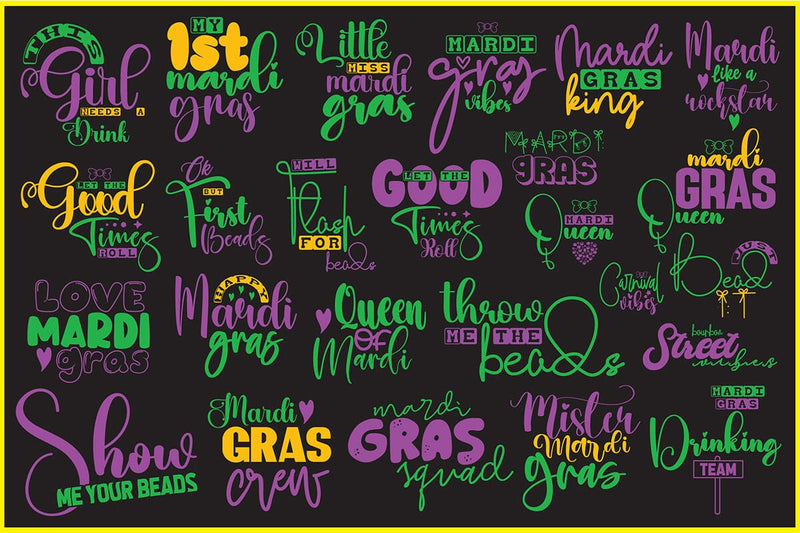 THIS
Girl
NEEDS A
Drink
MY
1st
mardi
gras
Little
MISS
mardi
gras
MARDI
gray
vibes
Mardi
GRAS
king
Mardi
like a
rockstar
LET THE
Good
Times
ROLL
Ok
BUT
First
Beads
WILL
Flash
FOR
beads
LET THE
GOOD
Times
Roll
MARDI
GRAS
MARDI
Queen
mardi
GRAS
Queen
LOVE
MARDI
gras
HAPPY
Mardi
gras
Queen
OF
Mardi
throw
ME THE
beads
Carnival
vibes
JUST
Bead
IT
bourbon
Street
vibes
Show
ME YOUR BEADS
Mardi
GRAS
crew
mardi
GRAS
squad
Mister
Mardi
gras
MARDI
GRAS
Drinking
TEAM